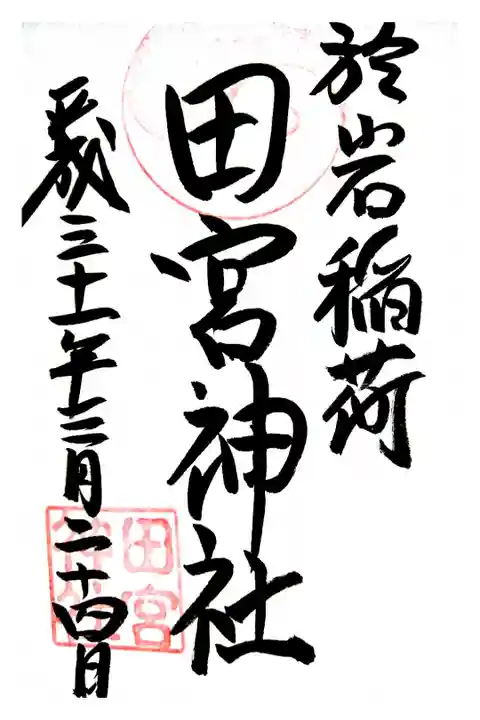 於岩稲荷
田宮神社
平成三十一年三月二十四日
田宮
神社